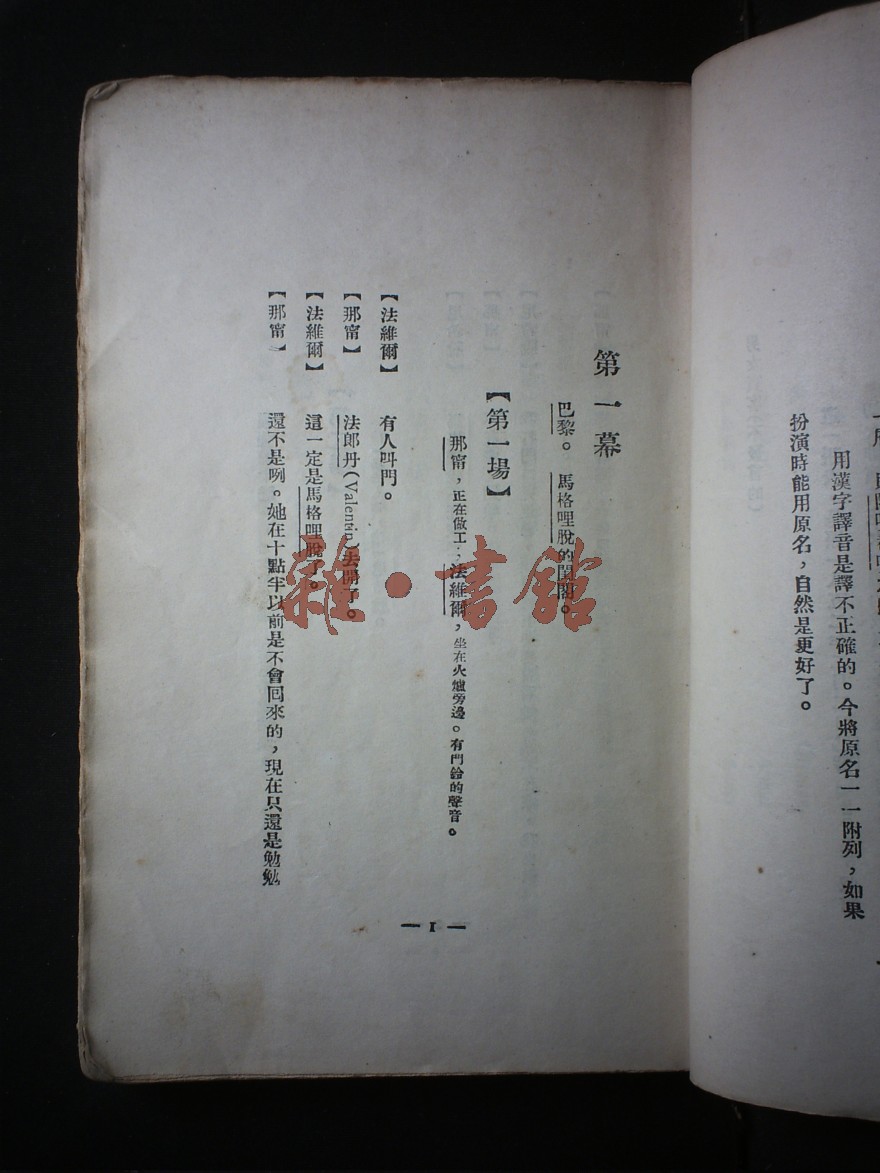 用漢字譯音是譯不正確的。今將原名一一附列，如果
扮演時能用原名，自然是更好了。
第一幕
巴黎。馬格哩脫的閨閣。
【第一場】
那甯，正在做工；法維爾，坐在火爐旁邊。有門鈴的聲音。
【法維爾】 有人叫門。
【那甯】 法郎丹(Valentin)去開了。
【法維爾】 這一定是馬格哩脫了。
【那甯】 還不是咧。她在十點半以前是不會回來的，現在只還是勉勉
— 1 —
雜·書館